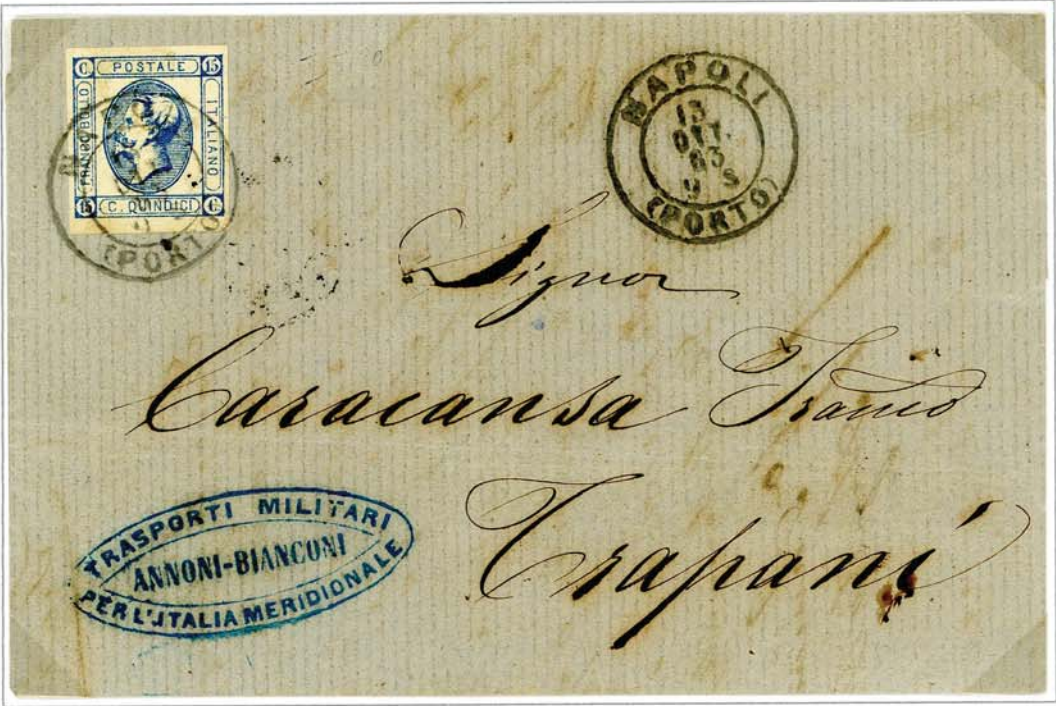 C. POSTALE 15
FRANCO BOLLO
ITALIANO
15 C. QUINDICI C.
(PORTO)
NAPOLI
13
OTT.
63
9 S
(PORTO)
Signor
Caracansa
Trapani
TRASPORTI MILITARI
ANNONI-BIANCONI
PER L'ITALIA MERIDIONALE